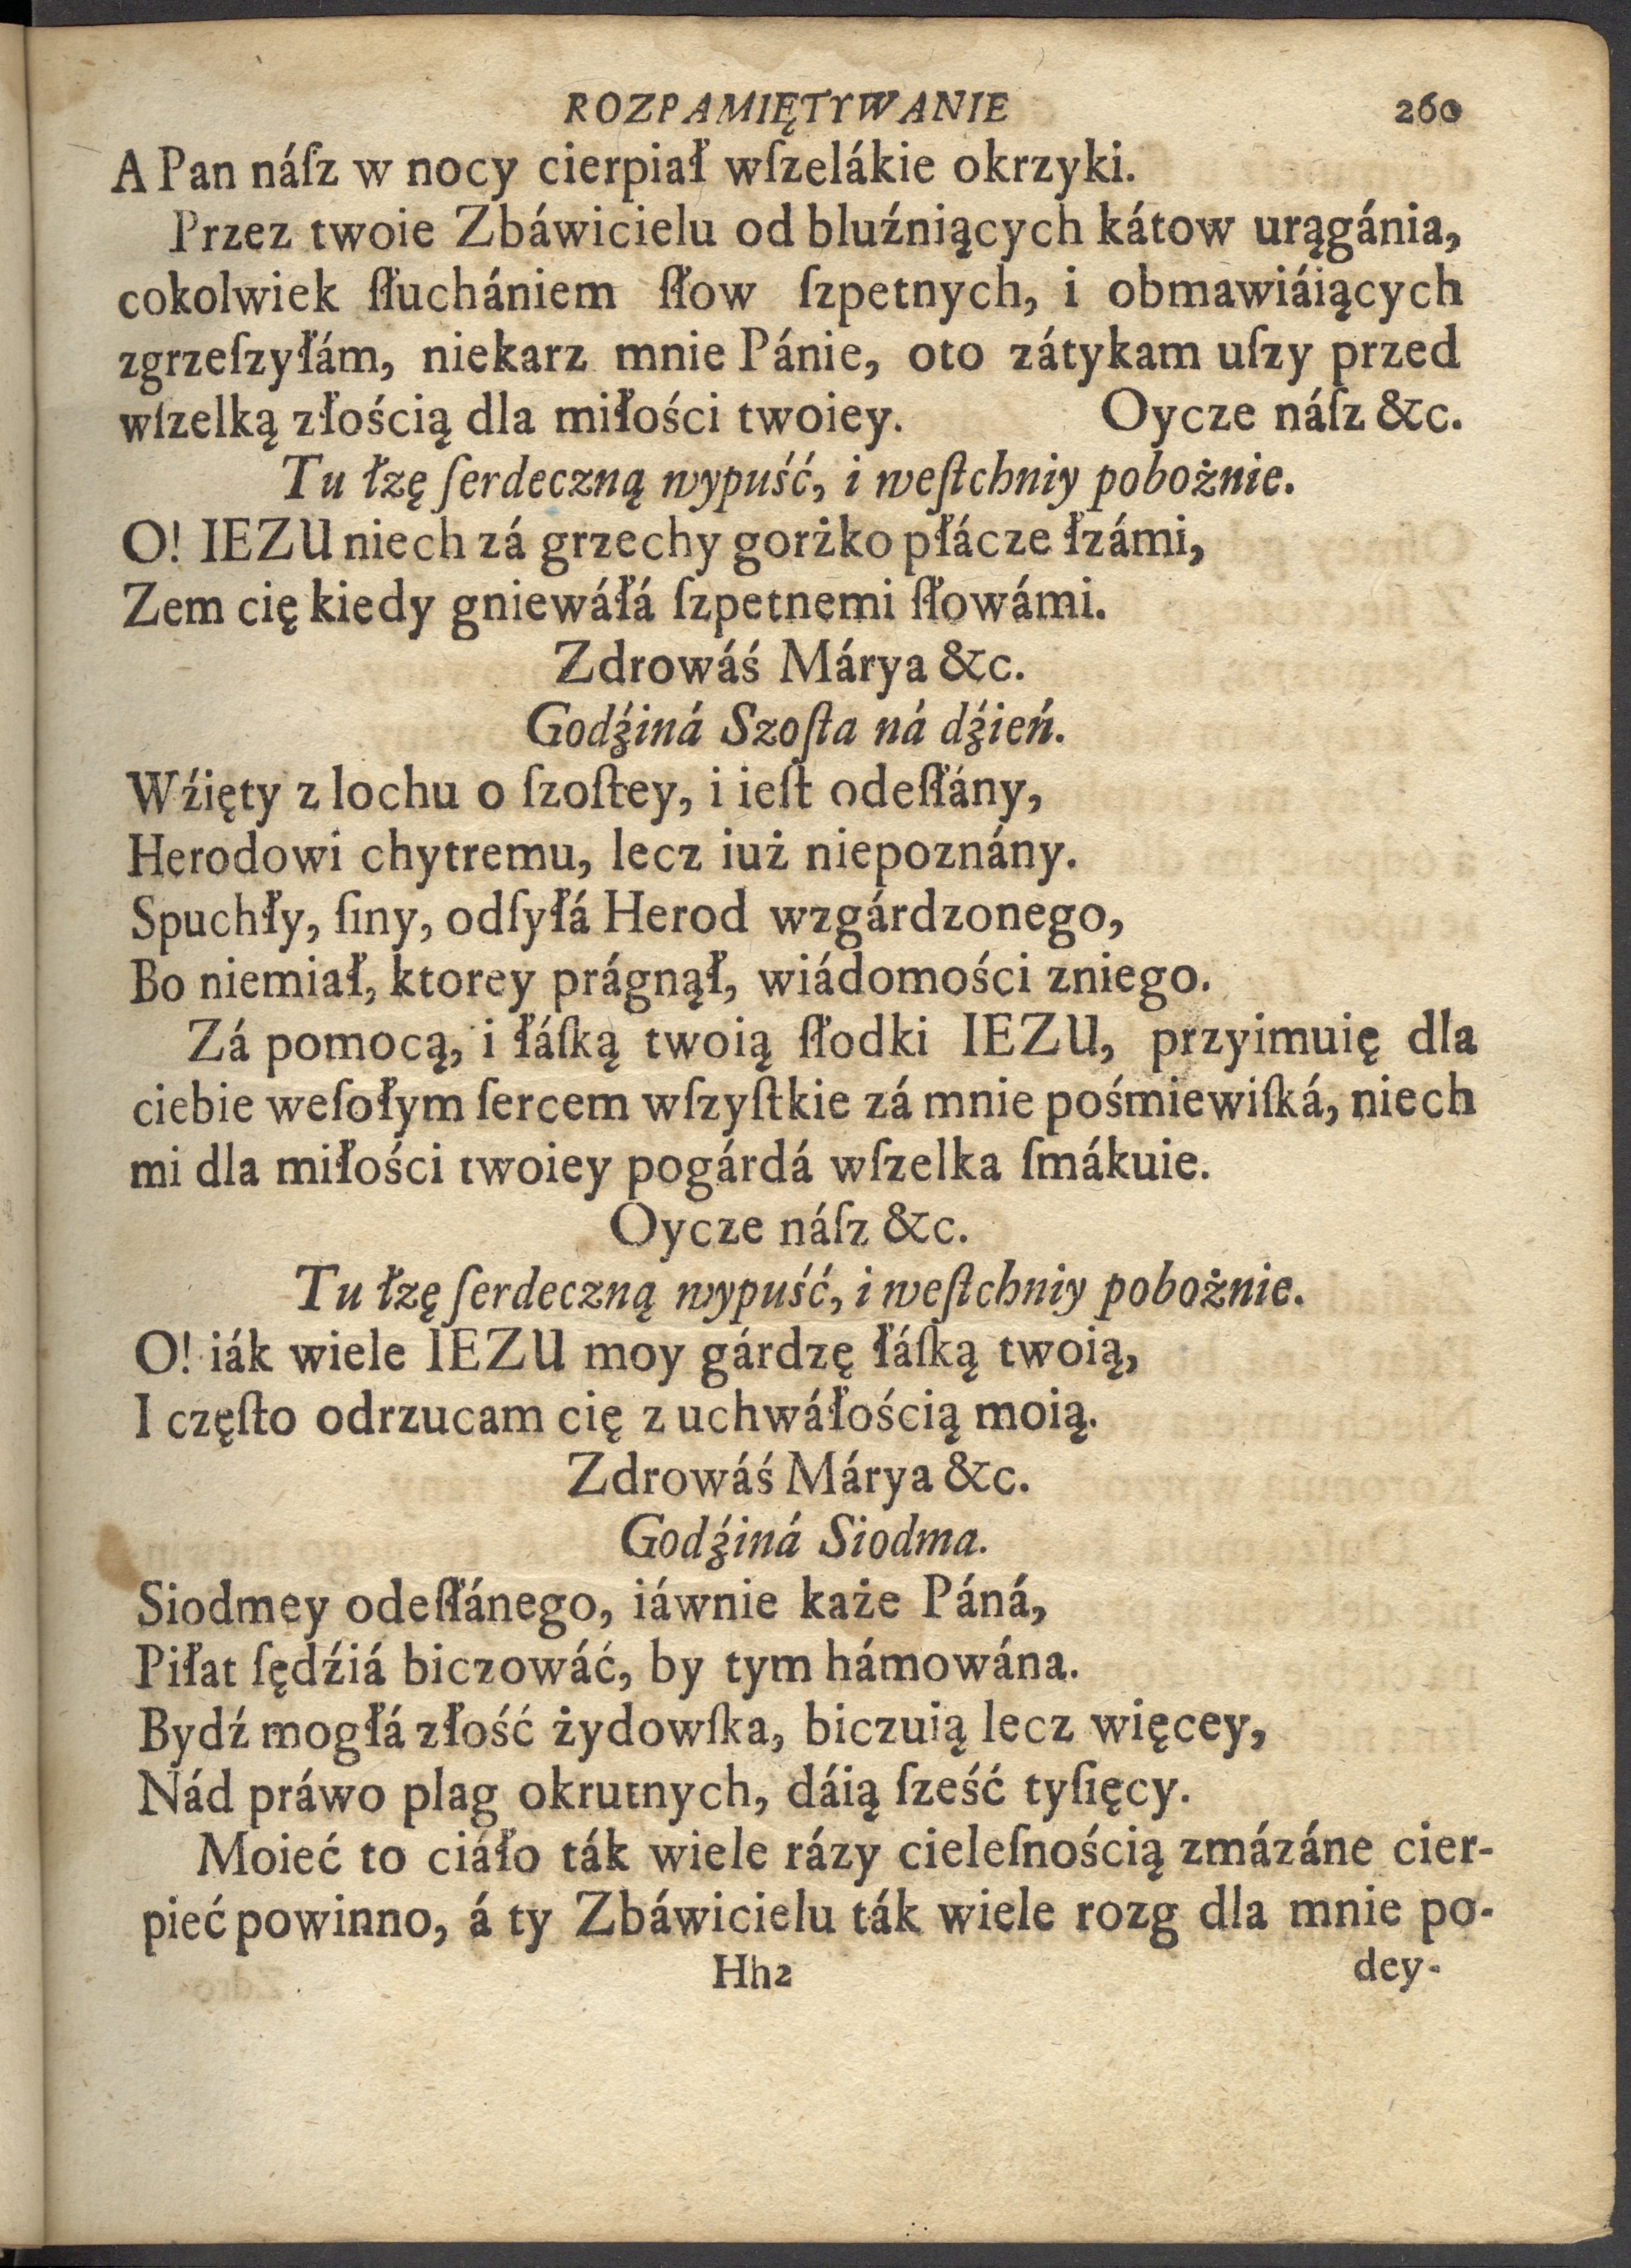 ROZPAMIĘTYWANIE 260
A Pan náſz w nocy cierpiał wſzelákie okrzyki.
Przez twoie Zbáwicielu od bluźniących kátow urągánia,
cokolwiek ſłuchániem ſłow ſzpetnych, i obmawiáiących
zgrzeſzyłám, niekarz mnie Pánie, oto zátykam uſzy przed
wſzelką złością dla miłości twoiey. Oycze náſz &c.
Tu łzę ſerdeczną wypuść, i weſtchniy pobożnie.
O! IEZU niech zá grzechy gorżko płácze łzámi,
Zem cię kiedy gniewáłá ſzpetnemi ſłowámi.
Zdrowáś Márya &c.
Godźiná Szoſta ná dźień.
Wźięty z lochu o ſzoſtey, i ieſt odeſłány,
Herodowi chytremu, lecz iuż niepoznány.
Spuchły, ſiny, odſyłá Herod wzgárdzonego,
Bo niemiał, ktorey prágnął, wiádomości zniego.
Zá pomocą, i łáſką twoią ſłodki IEZU, przyimuię dla
ciebie weſołym ſercem wſzyſtkie zá mnie pośmiewiſká, niech
mi dla miłości twoiey pogárdá wſzelka ſmákuie.
Oycze náſz &c.
Tu łzę ſerdeczną wypuść, i weſtchniy pobożnie.
O! iák wiele IEZU moy gárdzę łáſką twoią,
I częſto odrzucam cię z uchwáłością moią.
Zdrowáś Márya &c.
Godźiná Siodma.
Siodmey odeſłánego, iáwnie każe Páná,
Piłat ſędźiá biczowáć, by tym hámowána.
Bydź mogłá złość żydowſka, biczuią lecz więcey,
Nád práwo plag okrutnych, dáią ſześć tyſięcy.
Moieć to ciáło ták wiele rázy cieleſnością zmázáne cier-
pieć powinno, á ty Zbáwicielu ták wiele rozg dla mnie po-
Hh2 dey-